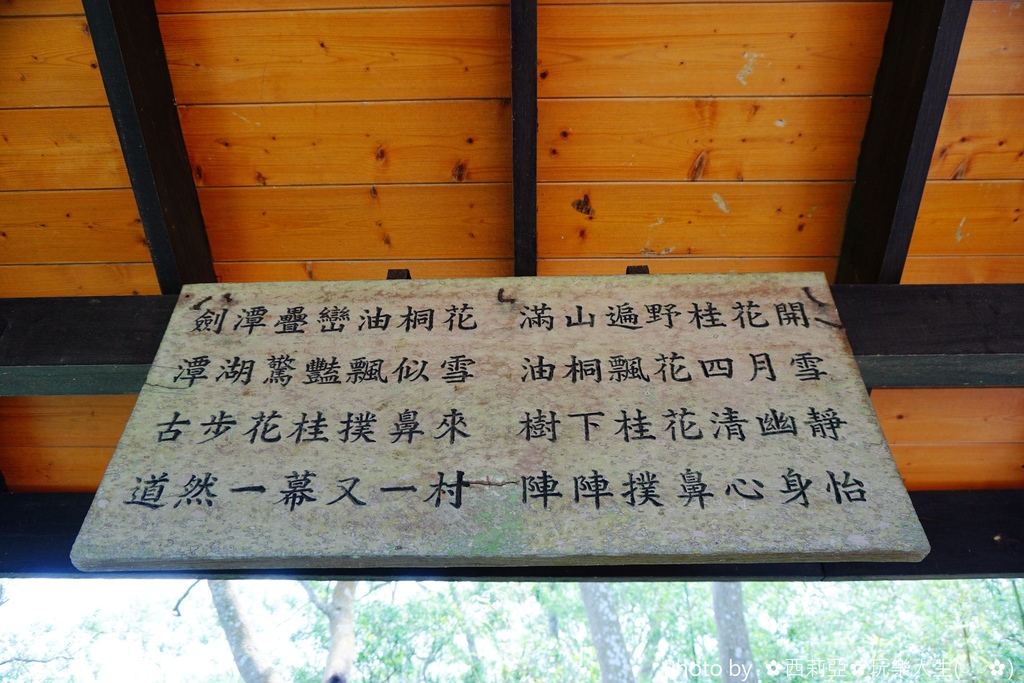 劍潭疊巒油桐花 滿山遍野桂花開
潭湖驚豔飄似雪 油桐飄花四月雪
古步花桂撲鼻來 樹下桂花清幽靜
道然一幕又一村 陣陣撲鼻心身怡
photo by 西莉亞✿玩樂人生(